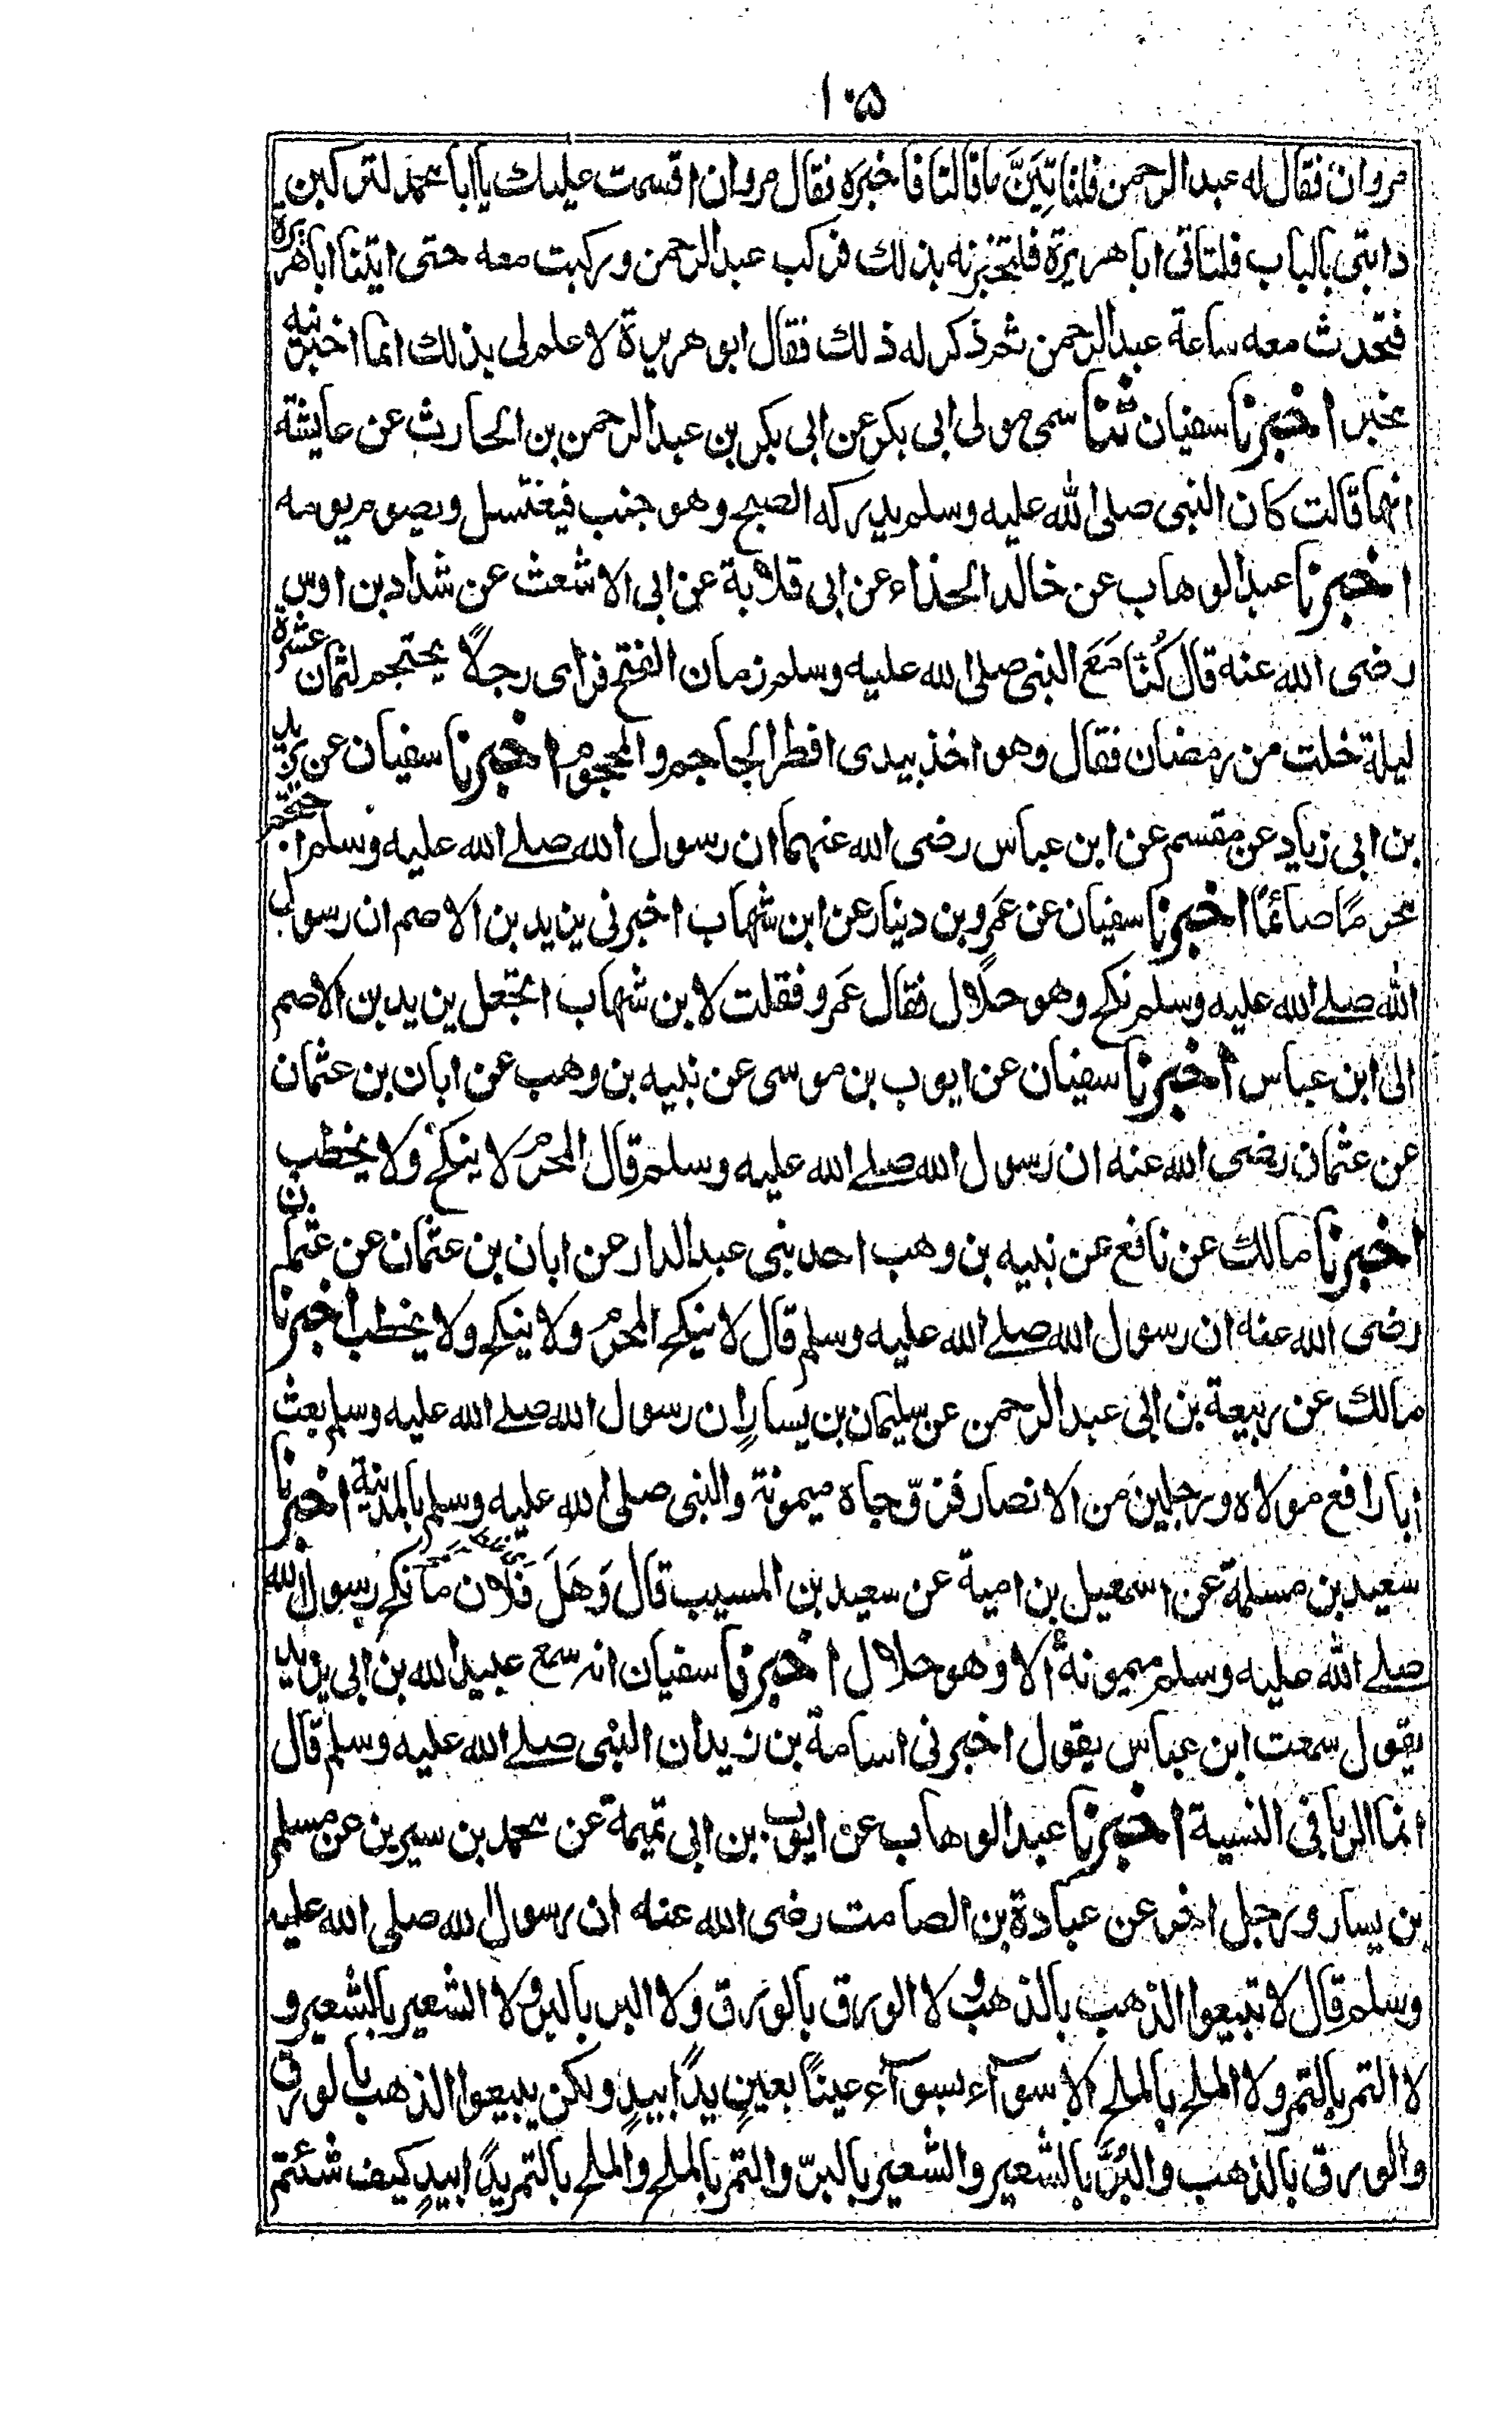 ١٠۵
مروان فقال له عبد الرحمن فلناتِيَنَّ ما قالتا فاخبره فقال مروان اقسمت عليك يا ابا محمد لتركبن
دابتى بالباب فلتاتى ابا هريرة فلتخبرنه بذلك فركب عبد الرحمن وركبت معه حتى اتينا ابا هريرة
فتحدث معه ساعة عبد الرحمن ثم ذكر له ذلك فقال ابو هريرة لا علم لى بذلك انما اخبرنيه
مخبر اخبرنا سفيان ثنا سمى مولى ابى بكر عن ابى بكر بن عبد الرحمن بن الحارث عن عايشة
انها قالت كان النبى صلى الله عليه وسلم يدركه الصبح وهو جنب فيغتسل ويصوم يومه
اخبرنا عبد الوهاب عن خالد الحذاء عن ابى قلابة عن ابى الاشعث عن شداد بن اوس
رضى الله عنه قال كُنّا مَعَ النبى صلى الله عليه وسلم زمان الفتح فراى رجلاً يحتجم لثمان عشرة
ليلة خلت من رمضان فقال وهو اخذ بيدى افطر الحاجم والمحجوم اخبرنا سفيان عن يزيد
بن ابى زياد عن مقسم عن ابن عباس رضى الله عنهما ان رسول الله صلے الله عليه وسلم احتجم
محرمًا صائمًا اخبرنا سفيان عن عمرو بن دينار عن ابن شهاب اخبرنى يزيد بن الاصم ان رسول
الله صلے الله عليه وسلم نكح وهو حلال فقال عَمرو فقلت لابن شهاب اتجعل يزيد بن الاصم
الى ابن عباس اخبرنا سفيان عن ايوب بن موسى عن نبيه بن وهب عن ابان بن عثمان
عن عثمان رضى الله عنه ان رسول الله صلے الله عليه وسلم قال المحرم لا ينكح ولا يخطب
اخبرنا مالك عن نافع عن نبيه بن وهب احد بنى عبد الدار عن ابان بن عثمان عن عثمان
رضى الله عنه ان رسول الله صلے الله عليه وسلم قال لا ينكح المحرم ولا ينكح ولا يخطب اخبرنا
مالك عن ربيعة بن ابى عبد الرحمن عن سليمان بن يسار ان رسول الله صلے الله عليه وسلم بعث
ابا رافع مولاه ورجلين من الانصار فزوّجاه ميمونة والنبى صلى الله عليه وسلم بالمدينة اخبرنا
سعيد بن مسلمة عن اسمعيل بن امية عن سعيد بن المسيب قال وَهَلَ فلان ما نكح رسول الله
صلے الله عليه وسلم ميمونة الا وهو حلال اخبرنا سفيان انه سمع عبيد الله بن ابى يزيد
يقول سمعت ابن عباس يقول اخبرنى اسامة بن زيد ان النبى صلے الله عليه وسلم قال
انما الربا فى النسية اخبرنا عبد الوهاب عن ايوب بن ابى تميمة عن محمد بن سيرين عن مسلم
بن يسار ورجل اخر عن عبادة بن الصامت رضى الله عنه ان رسول الله صلى الله عليه
وسلم قال لا تبيعوا الذهب بالذهب ولا الورق بالورق ولا البر بالبر ولا الشعير بالشعير و
لا التمر بالتمر ولا الملح بالملح الا سوآء بسوآء عيناً بعينٍ يدًا بيدٍ ولكن يبيعوا الذهب بالورق
والورق بالذهب والبُرَّ بالشعير والشعير بالبرّ والتمر بالملح والملح بالتمر يدًا بيدٍ كيف شئتم